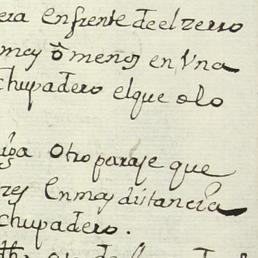 era enfrente de el zerro
mas ò menos en Vna
chupadero el que solo
otro paraje que
res en mas distancia
chupadero.